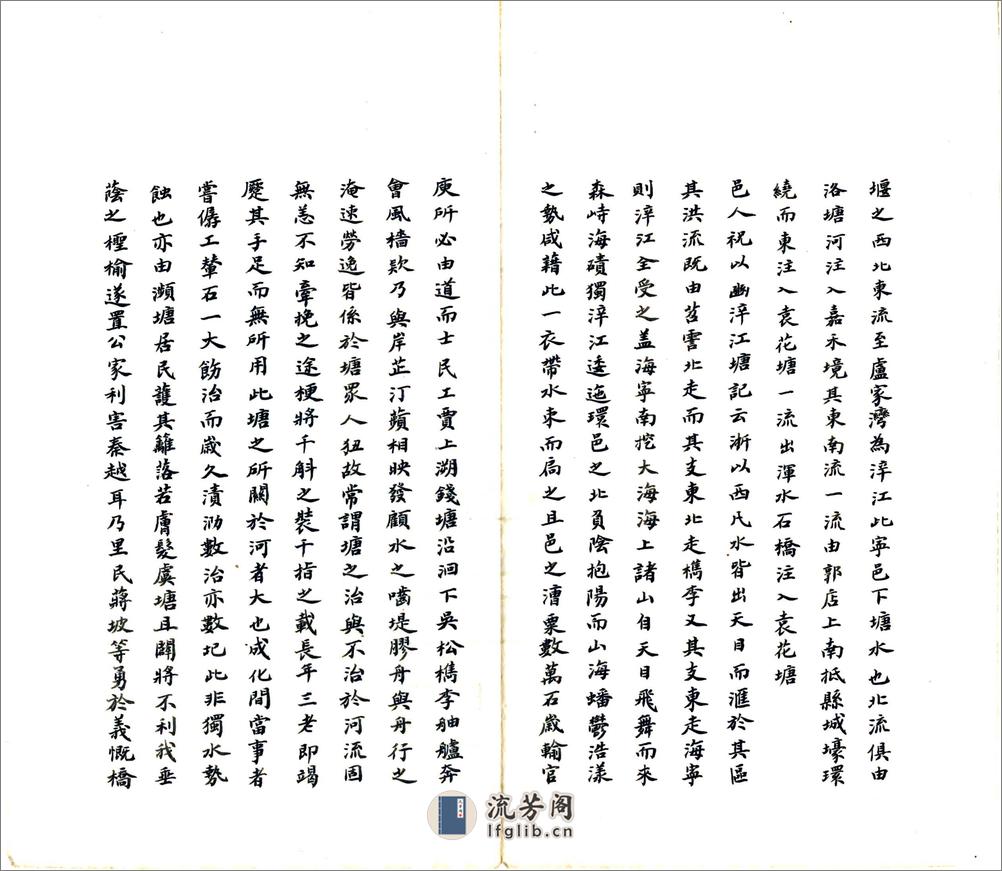 堰之西北東流至盧家灣為淬江此寧邑下塘水也北流俱由
洛塘河注入嘉禾境其東南流一流由郭店上南抵縣城壕環
繞而東注入袁花塘一流出渾水石橋注入袁花塘
邑人祝以豳淬江塘記云浙以西凡水皆出天目而滙於具區
其洪流既由苕霅北走而其支東北走檇李又其支東走海寧
則淬江全受之蓋海寧南控大海海上諸山自天目飛舞而來
森峙海磧獨淬江逶迤環邑之北負陰抱陽而山海蟠鬱浩漾
之勢咸藉此一衣帶水束而扃之且邑之漕粟數萬石歲輸官
庾所必由道而士民工賈上溯錢塘沿洄下吳松檇李舳艫奔
會風檣欵乃與岸芷汀蘋相映發顧水之嚙堤膠舟與舟行之
淹速勞逸皆係於塘眾人狃故常謂塘之治與不治於河流固
無恙不知牽挽之途梗將千斛之裝千指之載長年三老即竭
蹷其手足而無所用此塘之所關於河者大也成化間當事者
嘗僝工輦石一大飭治而歲久漬泐數治亦數圮此非獨水勢
蝕也亦由瀕塘居民護其籬落若膚髮虞塘且闢將不利我垂
蔭之檉榆遂置公家利害秦越耳乃里民蔣坡等勇於義慨橋
流芳阁
lfglib.cn